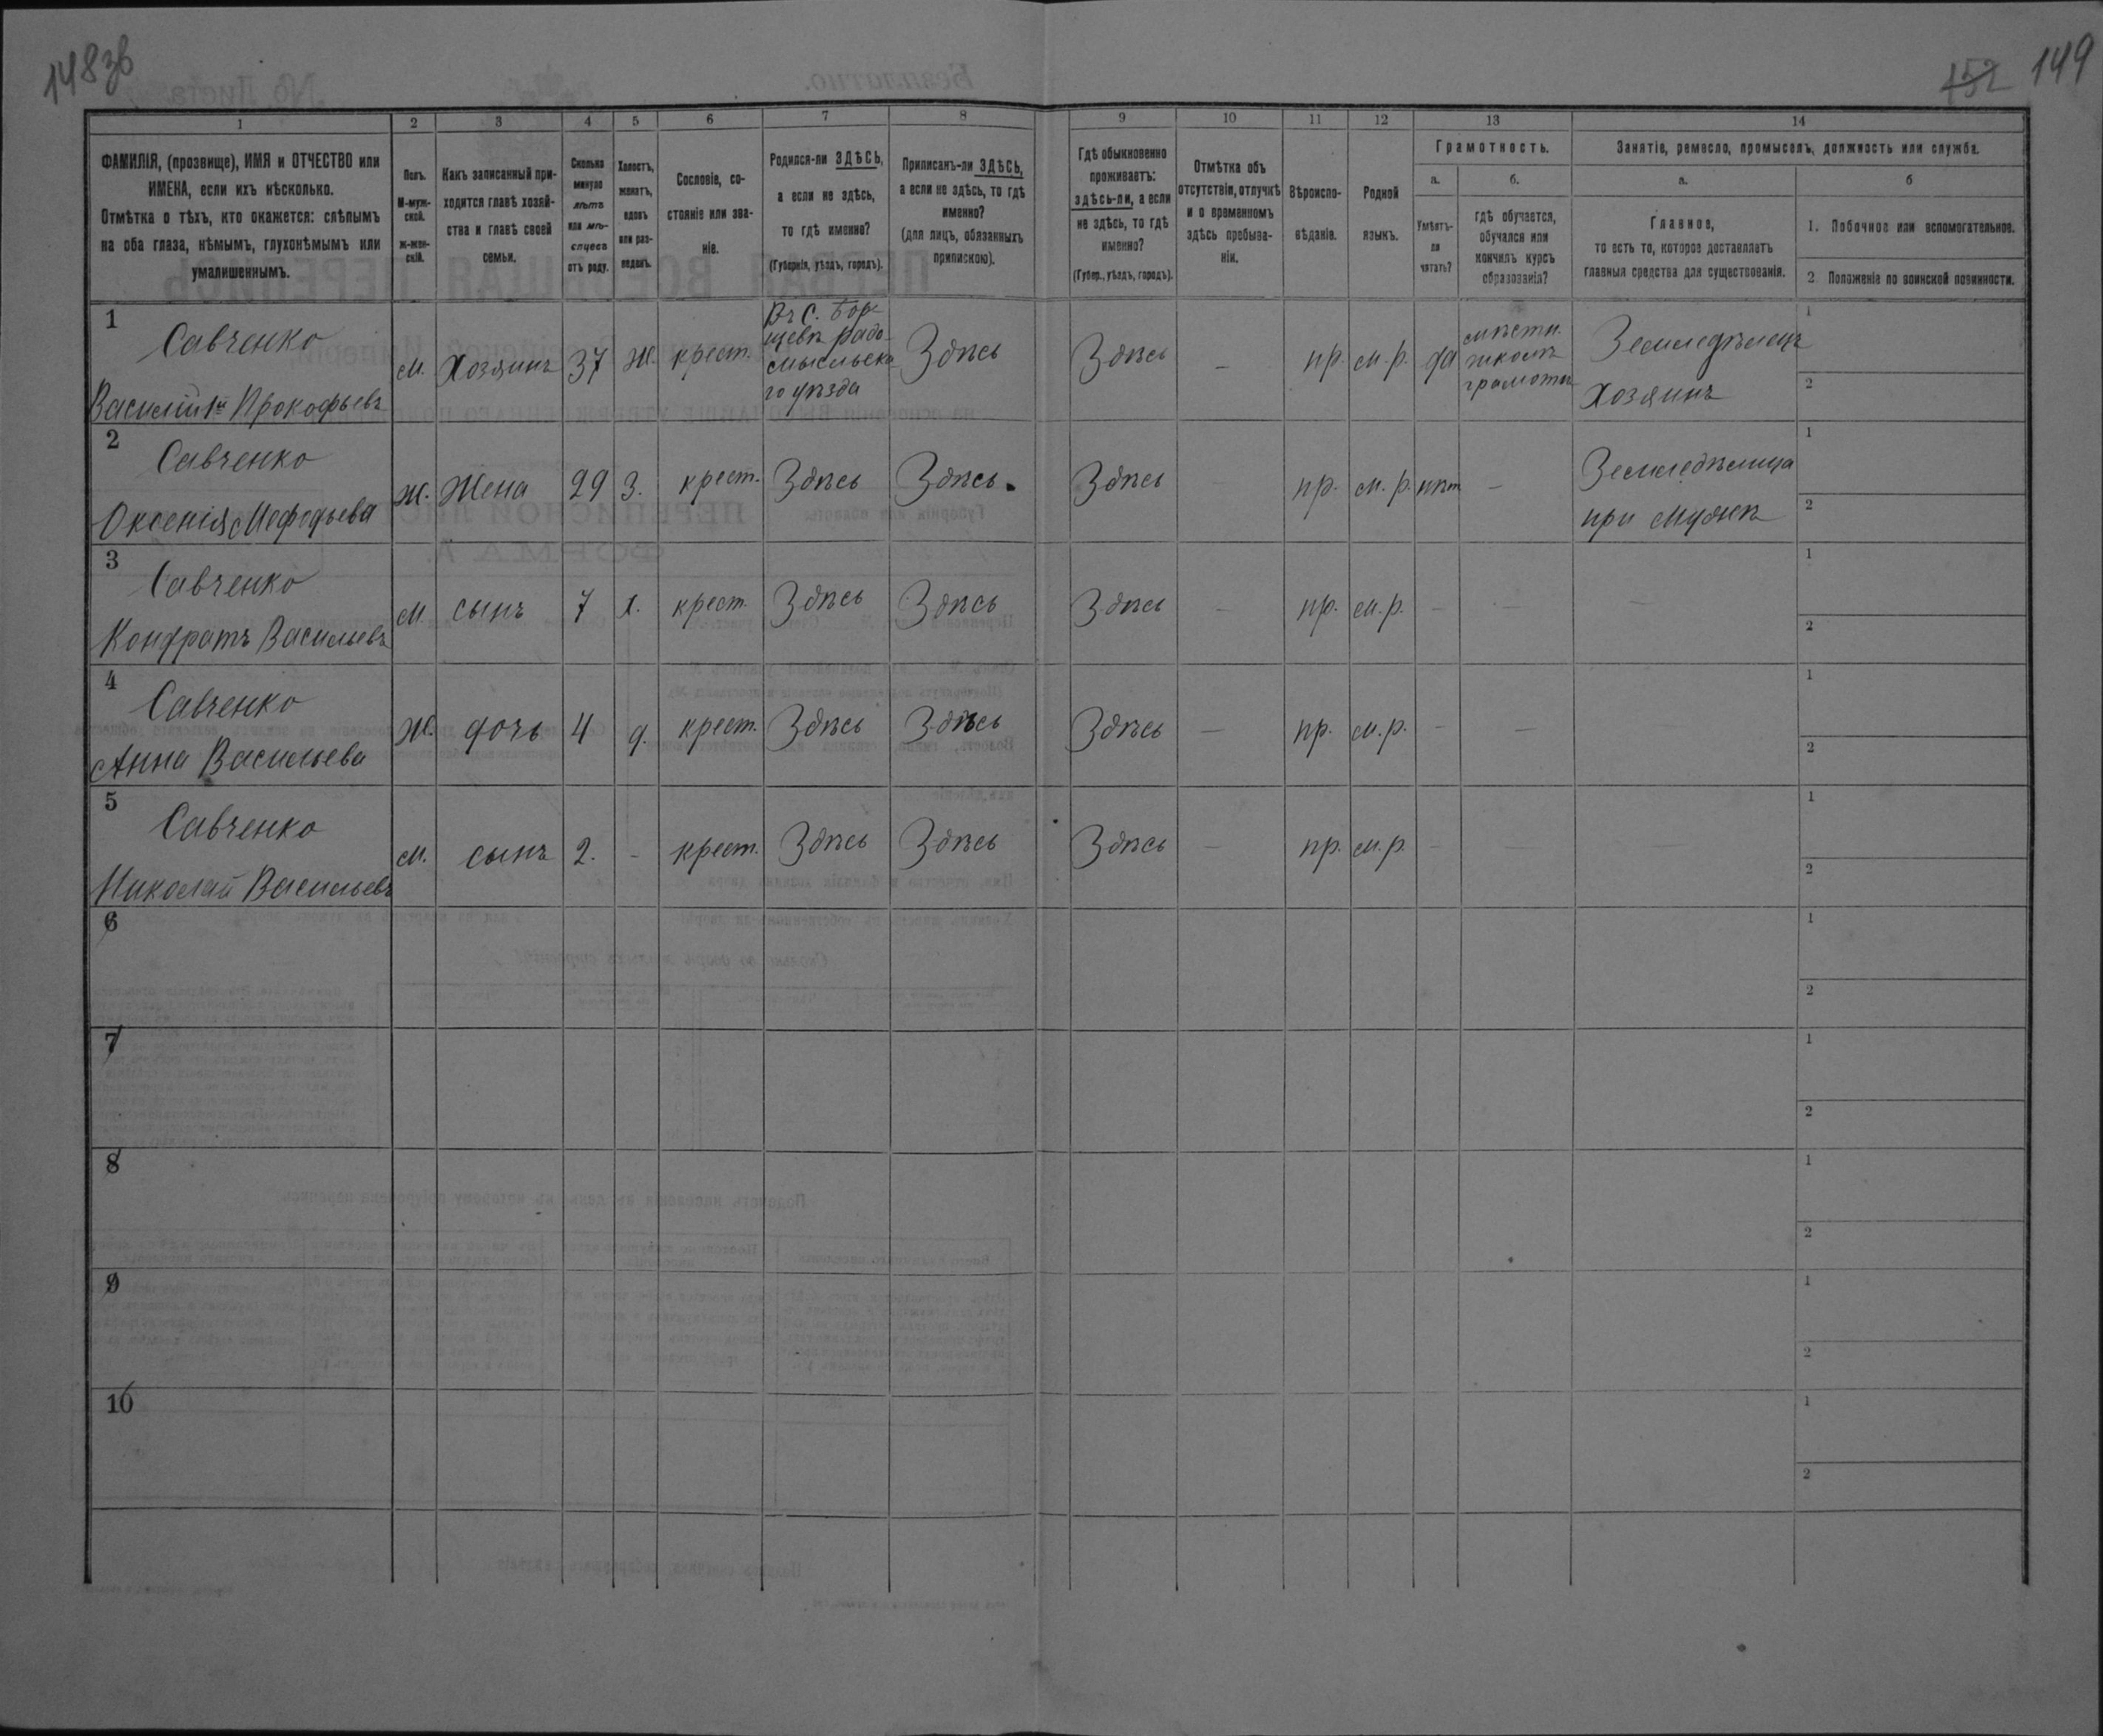 148 зв
152 149
1 2 3 4 5 6 7 8 9 10 11 12 13 14
ФАМИЛІЯ, (прозвище), ИМЯ и ОТЧЕСТВО или
ИМЕНА, если ихъ нѣсколько.
Отмѣтка о тѣхъ, кто окажется: слѣпымъ
на оба глаза, нѣмымъ, глухонѣмымъ или
умалишеннымъ.
Полъ.
М-муж-
ской.
ж-жен-
скій.
Какъ записанный при-
ходится главѣ хозяй-
ства и главѣ своей
семьи.
Сколько
минуло
лѣтъ
или мѣ-
сяцевъ
отъ роду.
Холостъ,
женатъ,
вдовъ
или раз-
веденъ.
Сословіе, со-
стояніе или зва-
ніе.
Родился-ли ЗДѢСЬ,
а если не здѣсь,
то гдѣ именно?
(Губернія, уѣздъ, городъ).
Приписанъ-ли ЗДѢСЬ,
а если не здѣсь, то гдѣ
именно?
(для лицъ, обязанныхъ
припискою).
Гдѣ обыкновенно
проживаетъ:
здѣсь-ли, а если
не здѣсь, то гдѣ
именно?
(Губер., уѣздъ, городъ).
Отмѣтка объ
отсутствіи, отлучкѣ
и о временномъ
здѣсь пребыва-
ніи.
Вѣроиспо-
вѣданіе.
Родной
языкъ.
Грамотность.
а.
Умѣетъ-
ли
читать?
б.
гдѣ обучается,
обучался или
кончилъ курсъ
образованія?
Занятіе, ремесло, промыселъ, должность или служба.
а.
Главное,
то есть то, которое доставляетъ
главныя средства для существованія.
б
1. Побочное или вспомогательное.
2 Положеніе по воинской повинности.
1 Савченко
Василій Прокофьевъ
м. Хозяинъ 37 Ж. крест.
Въ с. Бор-
щевѣ радо-
мысльска-
го уѣзда
Здѣсь Здѣсь – пр. м.р. да
мѣстн.
школѣ
грамоты
Земледѣлецъ
Хозяинъ
1
2
2 Савченко
Оксенія Мефодьева
ж. Жена 29 З. крест. Здѣсь Здѣсь. Здѣсь пр. м.р. нѣт –
Земледѣлица
при мужѣ
1
2
3 Савченко
Кондратъ Васильевъ
м. сынъ 7 х. крест. Здѣсь Здѣсь Здѣсь – пр. м.р. – – –
1
2
4 Савченко
Анна Васильева
Ж. дочь 4 д. крест. Здѣсь Здѣсь Здѣсь – пр. м.р. – –
1
2
5 Савченко
Николай Васильевъ
м. сынъ 2. – крест. Здѣсь Здѣсь Здѣсь – пр. м.р. – – –
1
2
6
1
2
7
1
2
8
1
2
9
1
2
10
1
2